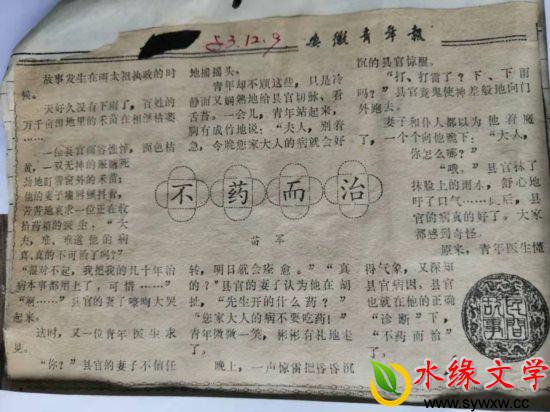 安徽青年报
不药而治
苗军
故事发生在明太祖执政的时
候。
天好久没有下雨了，百姓的
万千亩田地里的禾苗在相继枯萎
……
一位县官面容憔悴，面色枯
黄，一双无神的眼睛死
劲地盯着窗外的禾苗；
他的妻子嘴唇颤抖着，
苦苦地哀求一位正在收
拾药箱的医生："大
夫，难、难道他的病
真、真的不可治了吗？"
"很对不起，我把我的几十年治
病本事都用上了，可惜……"
"啊……"县官的妻子嚎啕大哭
起来。
这时，又一位青年医生求
见。
"你？"县官的妻子不信任
地摇摇头。
青年却不顾这些，只是冷
静而又娴熟地给县官切脉、看
舌苔。一会儿，青年站起来，
胸有成竹地说："夫人，别着
急，今晚您家大人的病就会好
转，明日就会痊愈。""真
的？"县官的妻子认为他在胡
扯，"先生开的什么药？"
"您家大人的病不要吃药！"
青年微微一笑，彬彬有礼地走
了。
晚上，一声惊雷把昏昏沉
沉的县官惊醒。
"打、打雷了？下、下雨
吗？"县官竟鬼使神差般地向门
外跑去。
妻子和仆人都以为他着魔
了，一个个向他跪下："大人，
你怎么哪？"
"哦。"县官抹了
抹脸上的雨水，舒心地
吁了口气……此后，县
官的病真的好了。大家
都感到奇怪。
原来，青年医生懂
得气象，又深知
县官病因，县官
也就在他的正确
"诊断"下，
"不药而治"
了。
民间故事
水缘文学
www.sywxw.cc